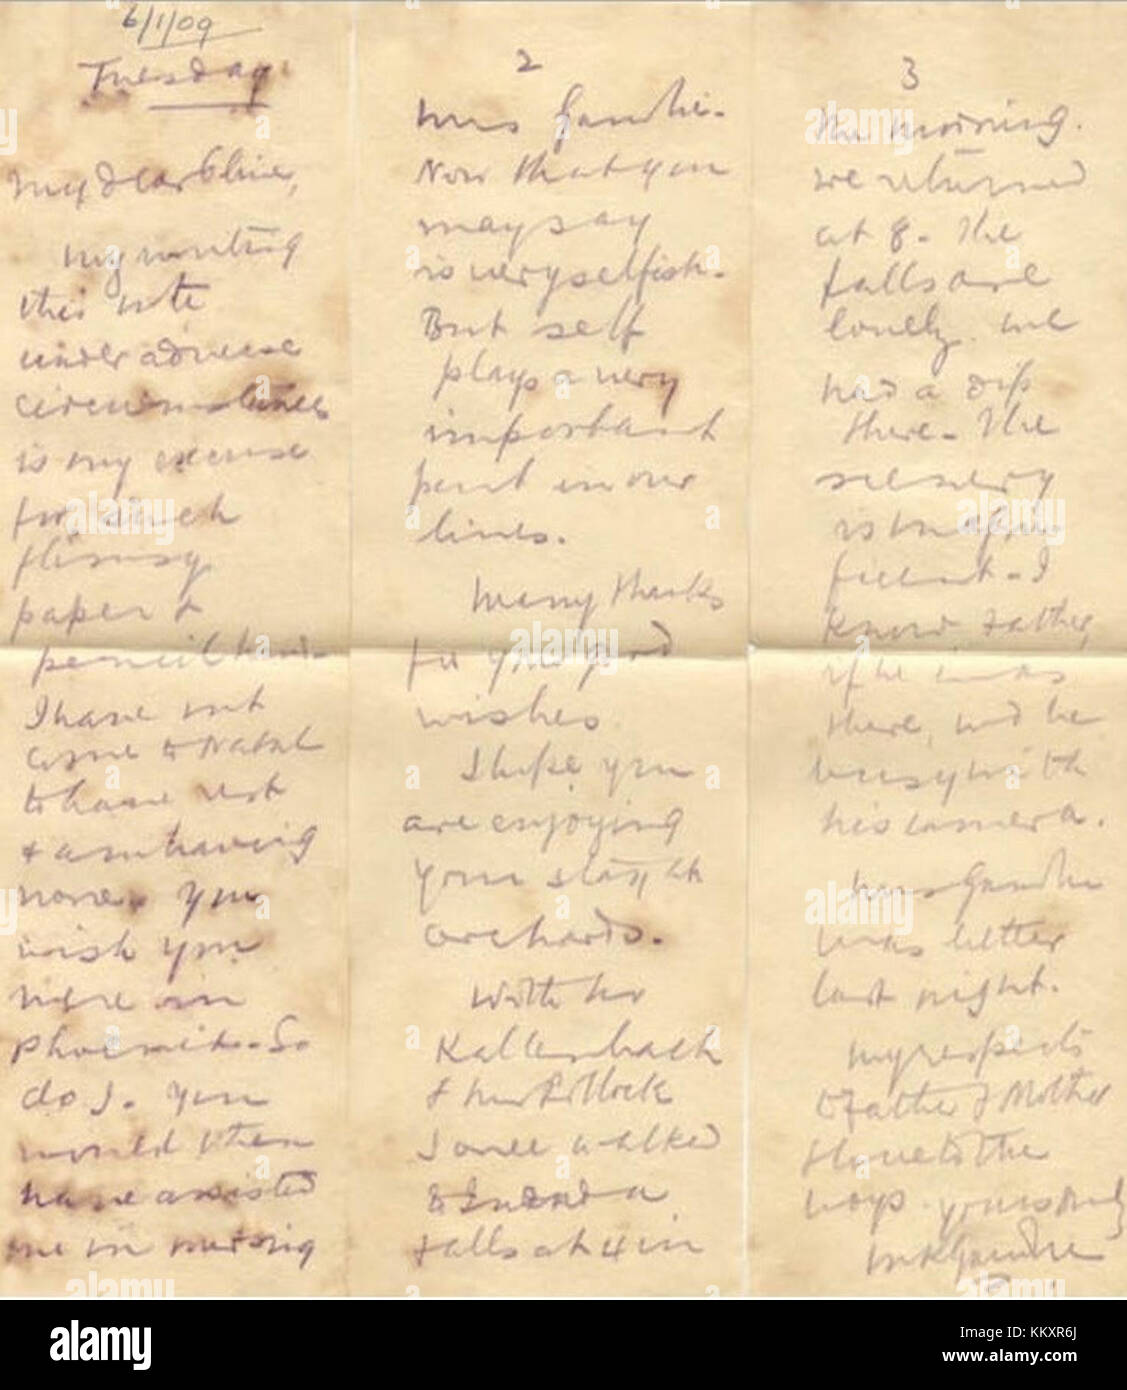 6/1/09
Tuesday
My dear Olive,
My writing
this note
under adverse
circumstances
is my excuse
for such
flimsy
paper &
pencil hand.
I have not
come to Natal
to have rest
& am having
none. You
wish you
were in
Phoenix. So
do I. You
would then
have assisted
me in nursing
2
Mrs Gandhi.
Now that you
may say
is very selfish.
But self
plays a very
important
part in our
lives.
Many thanks
for your good
wishes.
I hope you
are enjoying
your stay at
orchards.
With Mr
Kallenbach
& Mr Pollock
I once walked
to Inanda
falls at 4 in
3
the morning.
we returned
at 8. The
falls are
lovely. we
had a dip
there. The
scenery
is magni
ficent. I
know father,
if he was
there, wd be
busy with
his camera.
Mrs Gandhi
was better
last night.
My respects
to father & Mother
& love to the
boys. yours truly
MK Gandhi
alamy
a
alamy
Image ID: KKXR6J
www.alamy.com